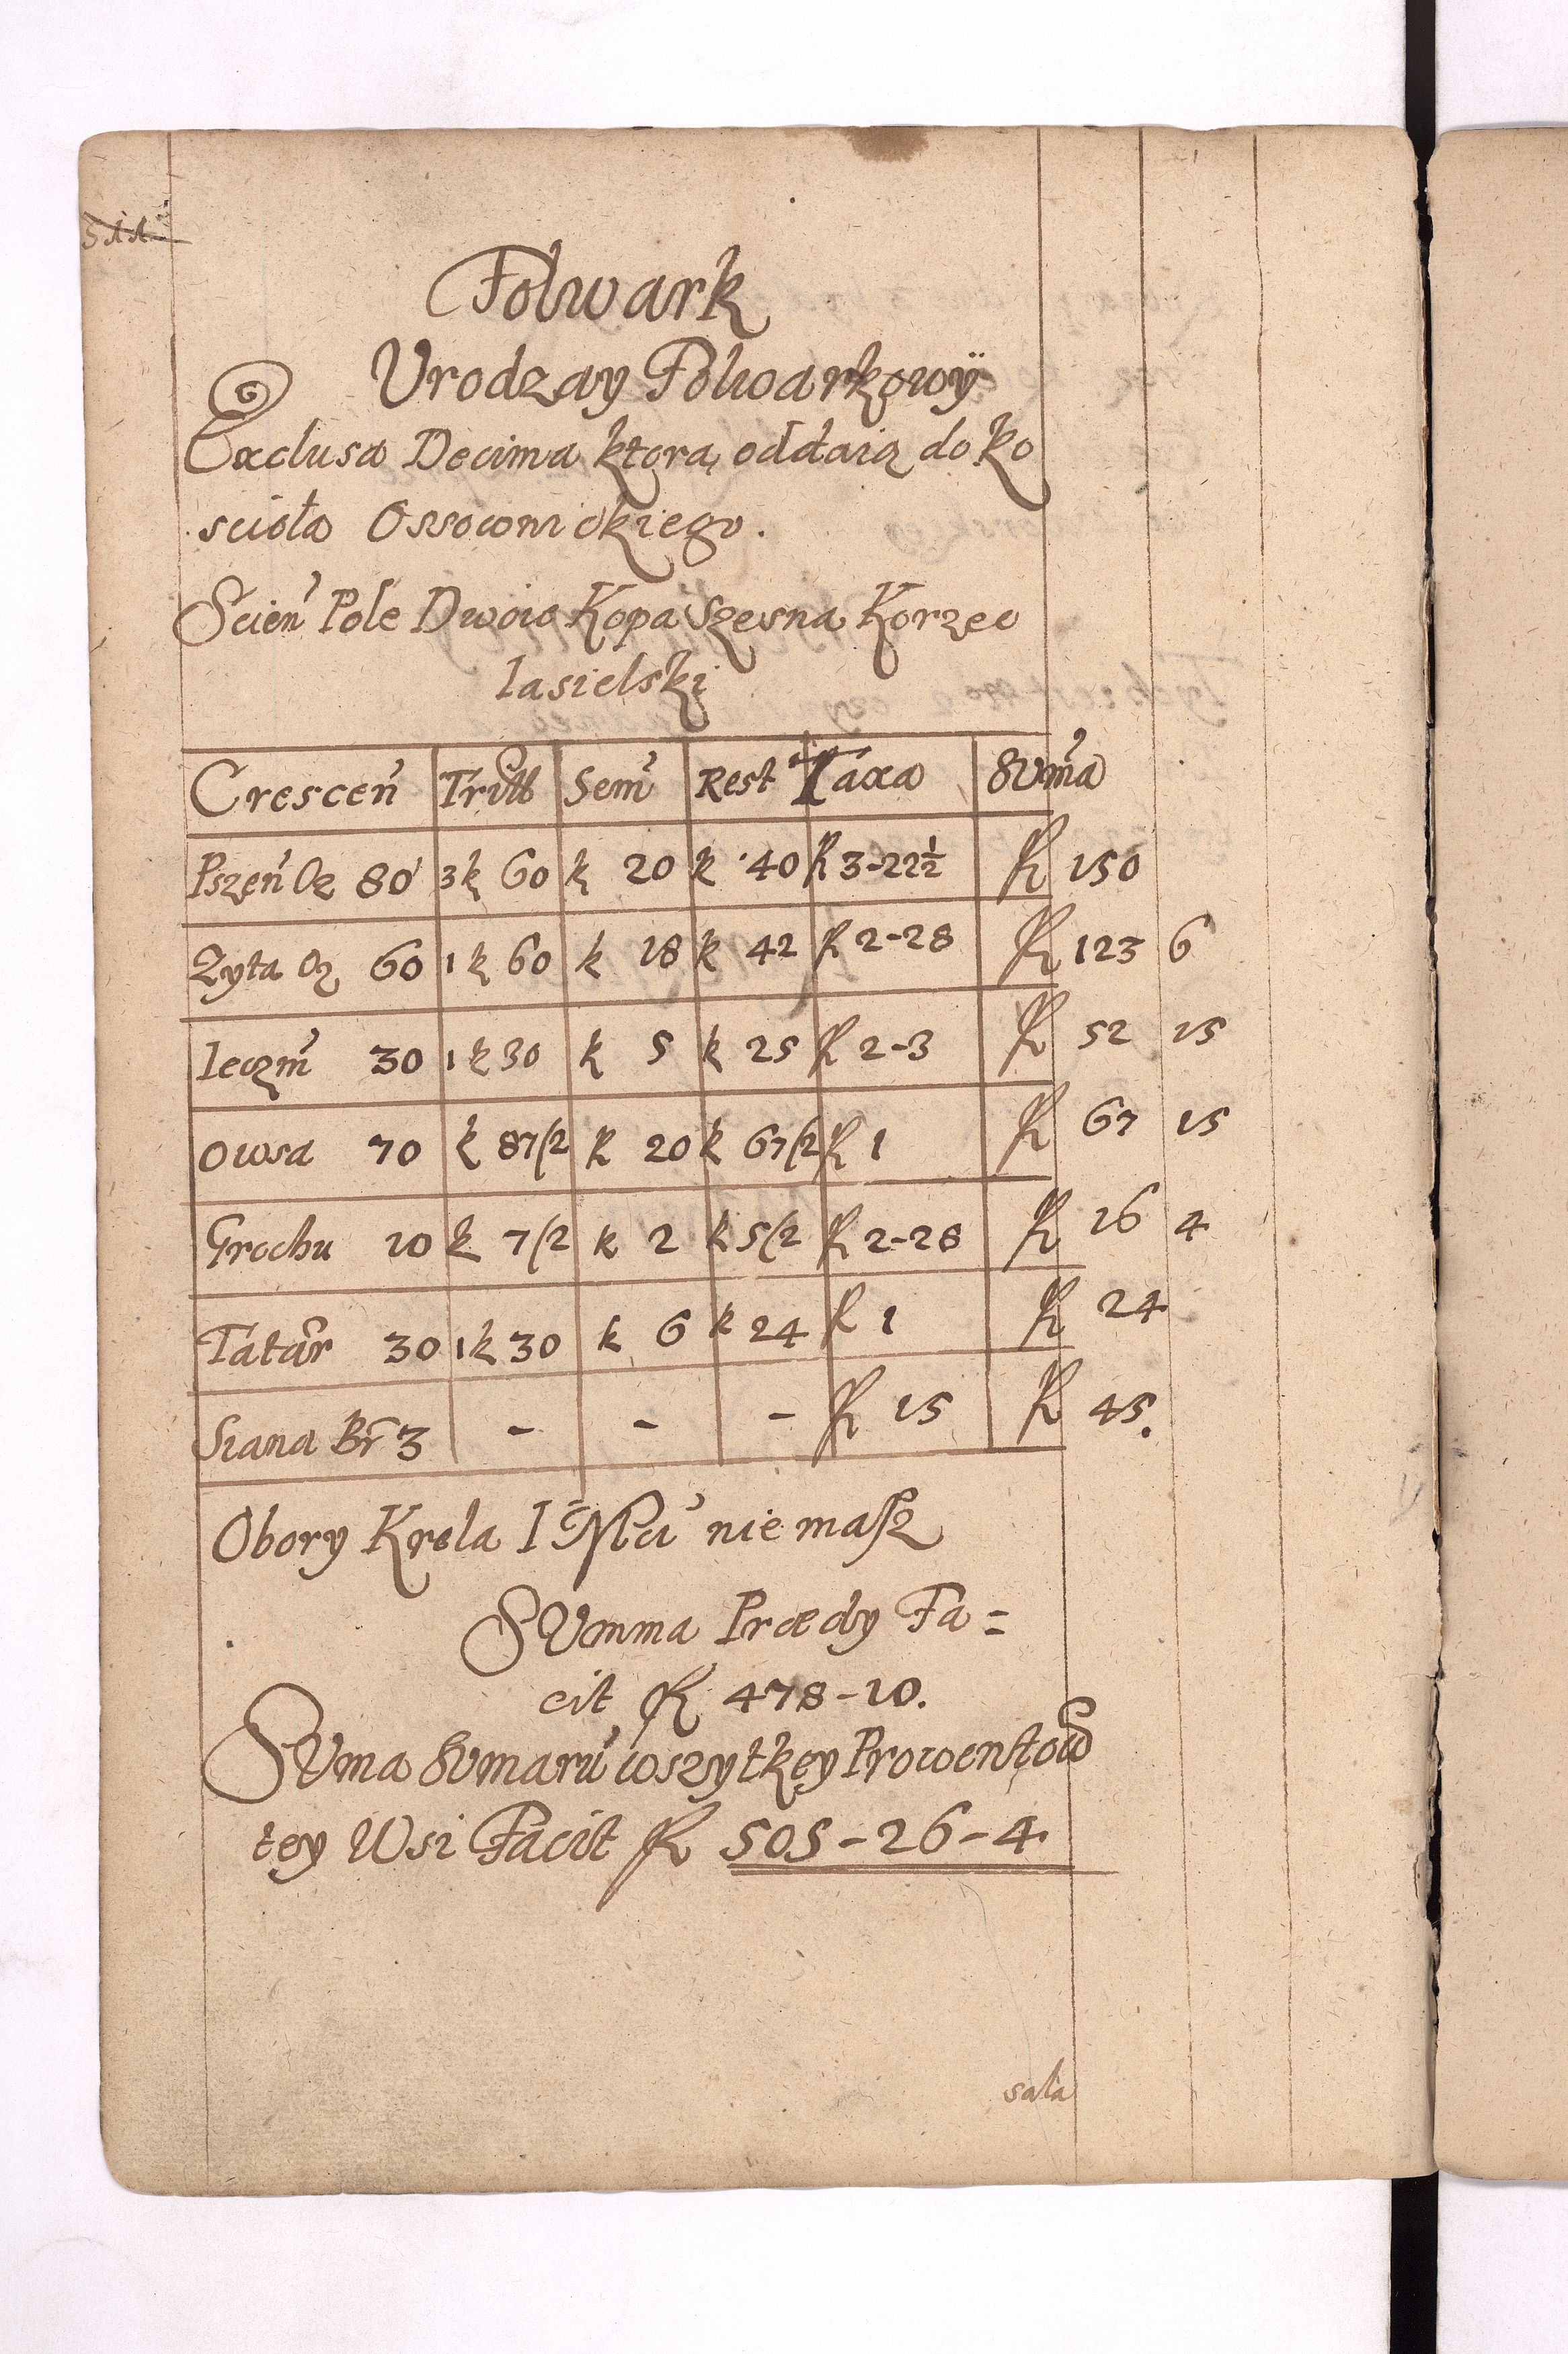 511
Folwark
Urodzay Folwarkowÿ
Exclusa Decima ktorą oddaią do Ko
scioła Ossownickiego.
Scień Pole Dwoie Kopa Szesna Korzec
Iasielski
Cresceń Tritt Sem̃ Rest Taxa Sum̃a
Pszeń Oz 80 3 k 60 k 20 k 40 fl 3-22½ fl 150
Zyta Oz 60 1 k 60 k 18 k 42 fl 2-28 fl 123 6
Ieczm̃ 30 1 k 30 k 5 k 25 fl 2-3 fl 52 15
Owsa 70 k 87/2 k 20 k 67/2 fl 1 fl 67 15
Grochu 10 k 7/2 k 2 k 5/2 fl 2-28 fl 16 4
Tatar̃ 30 1 k 30 k 6 k 24 fl 1 fl 24
Siana Br̃ 3 - - - fl 15 fl 45.
Obory Krola I Mci nie masz
SUmma Prædy Fa=
cit fl 478-10.
SUma Sumaru wszytkęy Prowentow
tey Wsi Facit fl 505-26-4
sala